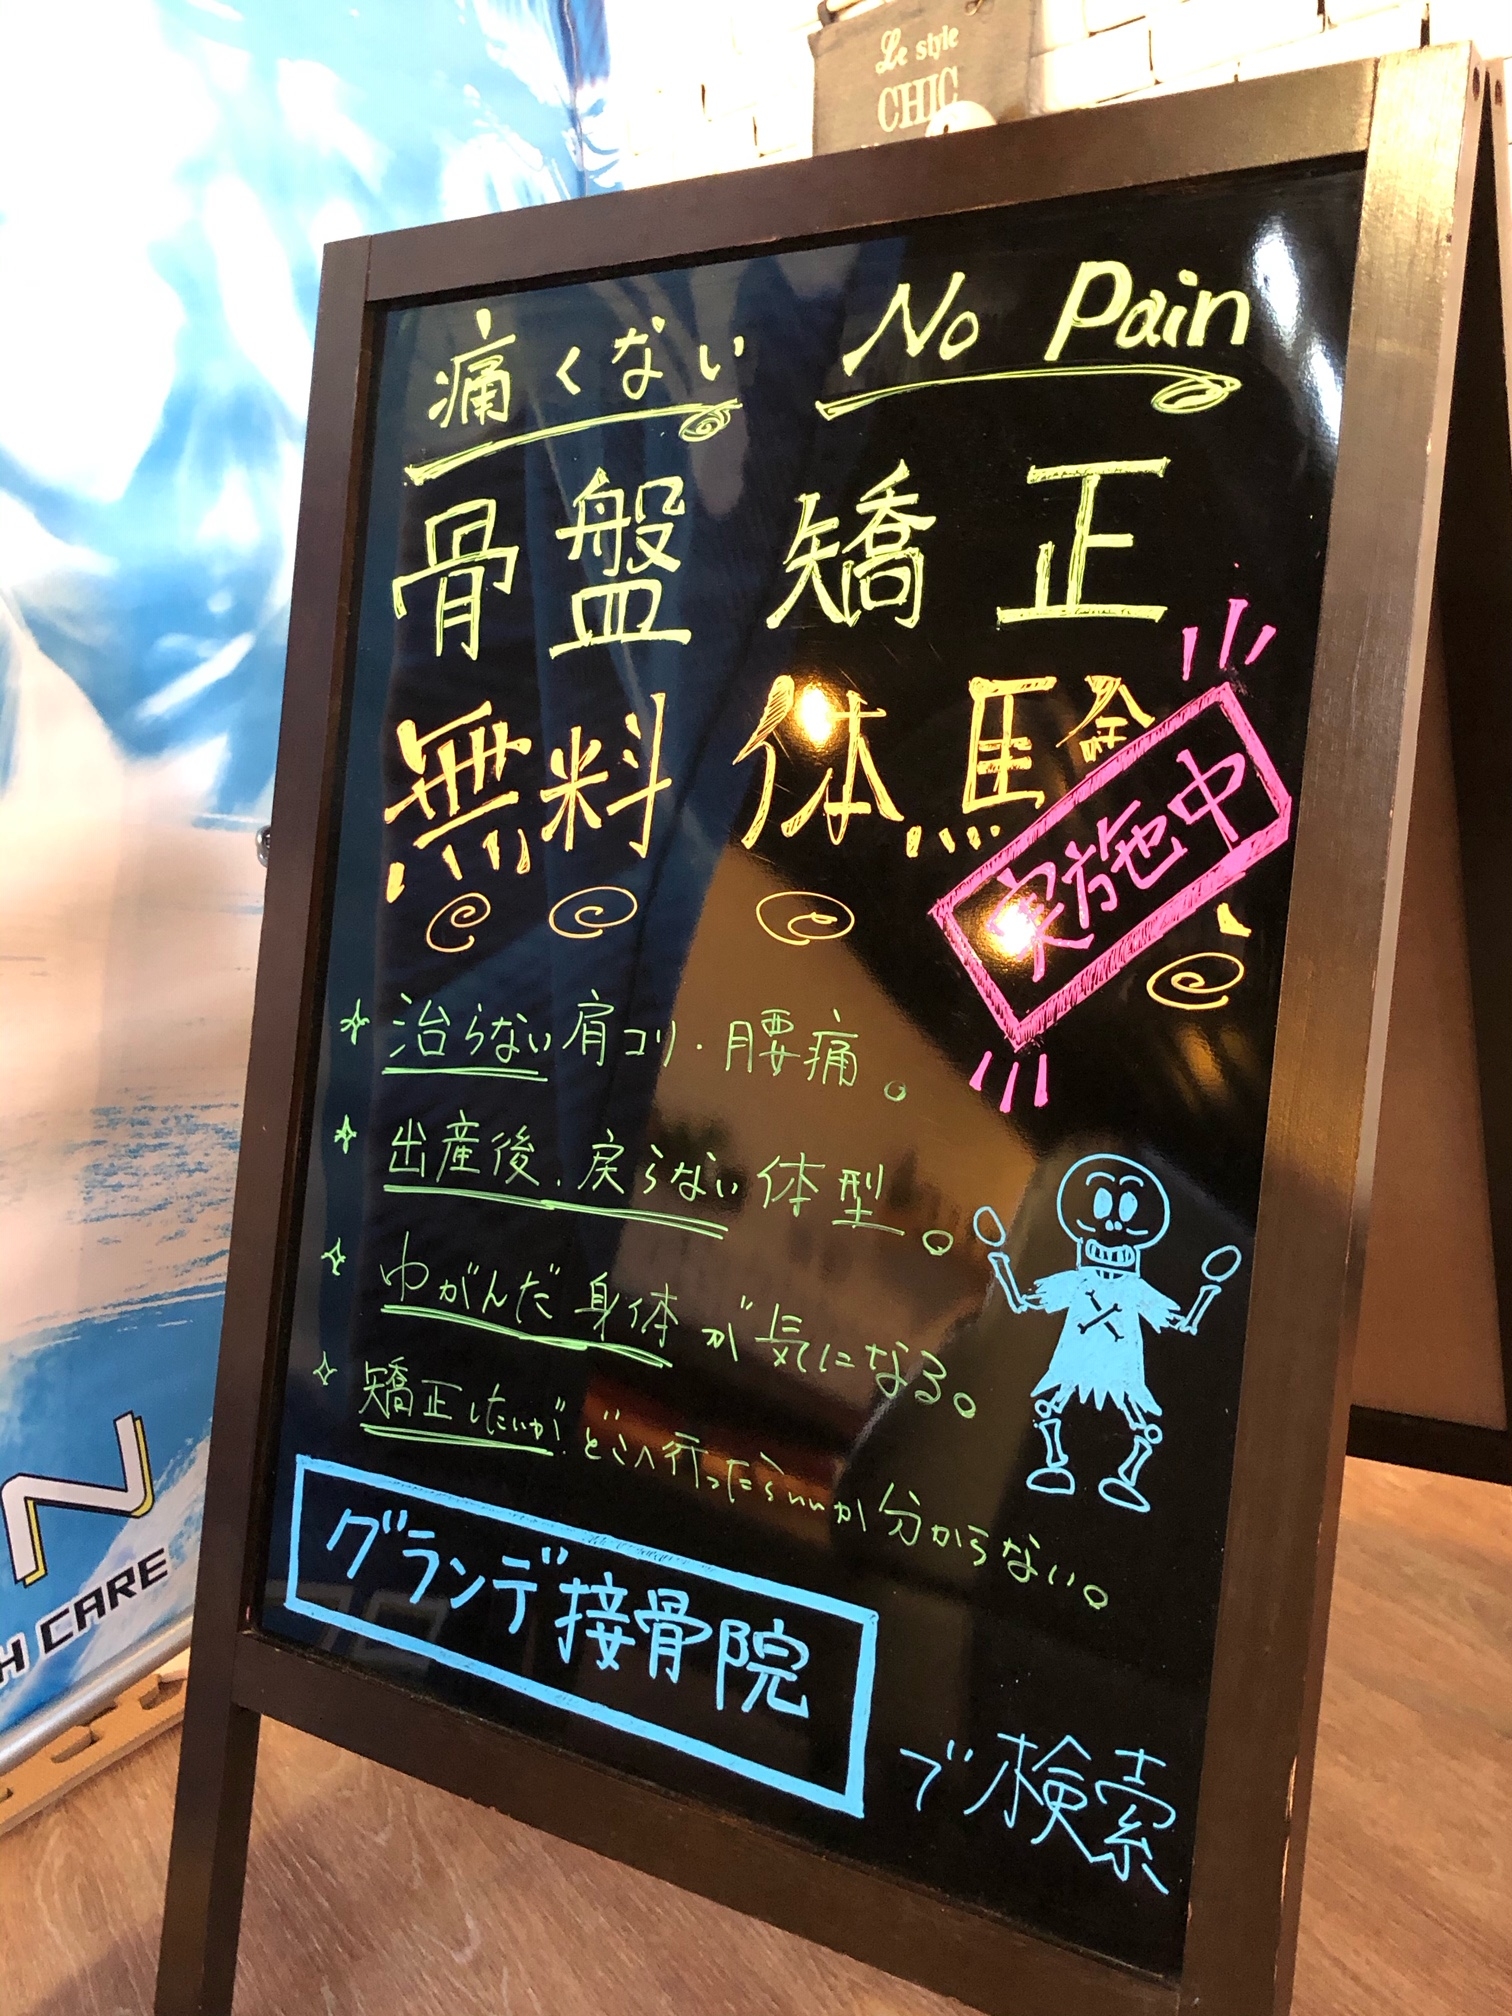 Le style
CHIC
痛くない No Pain
骨盤矯正
無料体験
実施中
治らない肩コリ・腰痛。
出産後、戻らない体型。
ゆがんだ身体が気になる。
矯正したいが、どこへ行ったらいいか分からない。
グランデ接骨院
で検索
N
H CARE